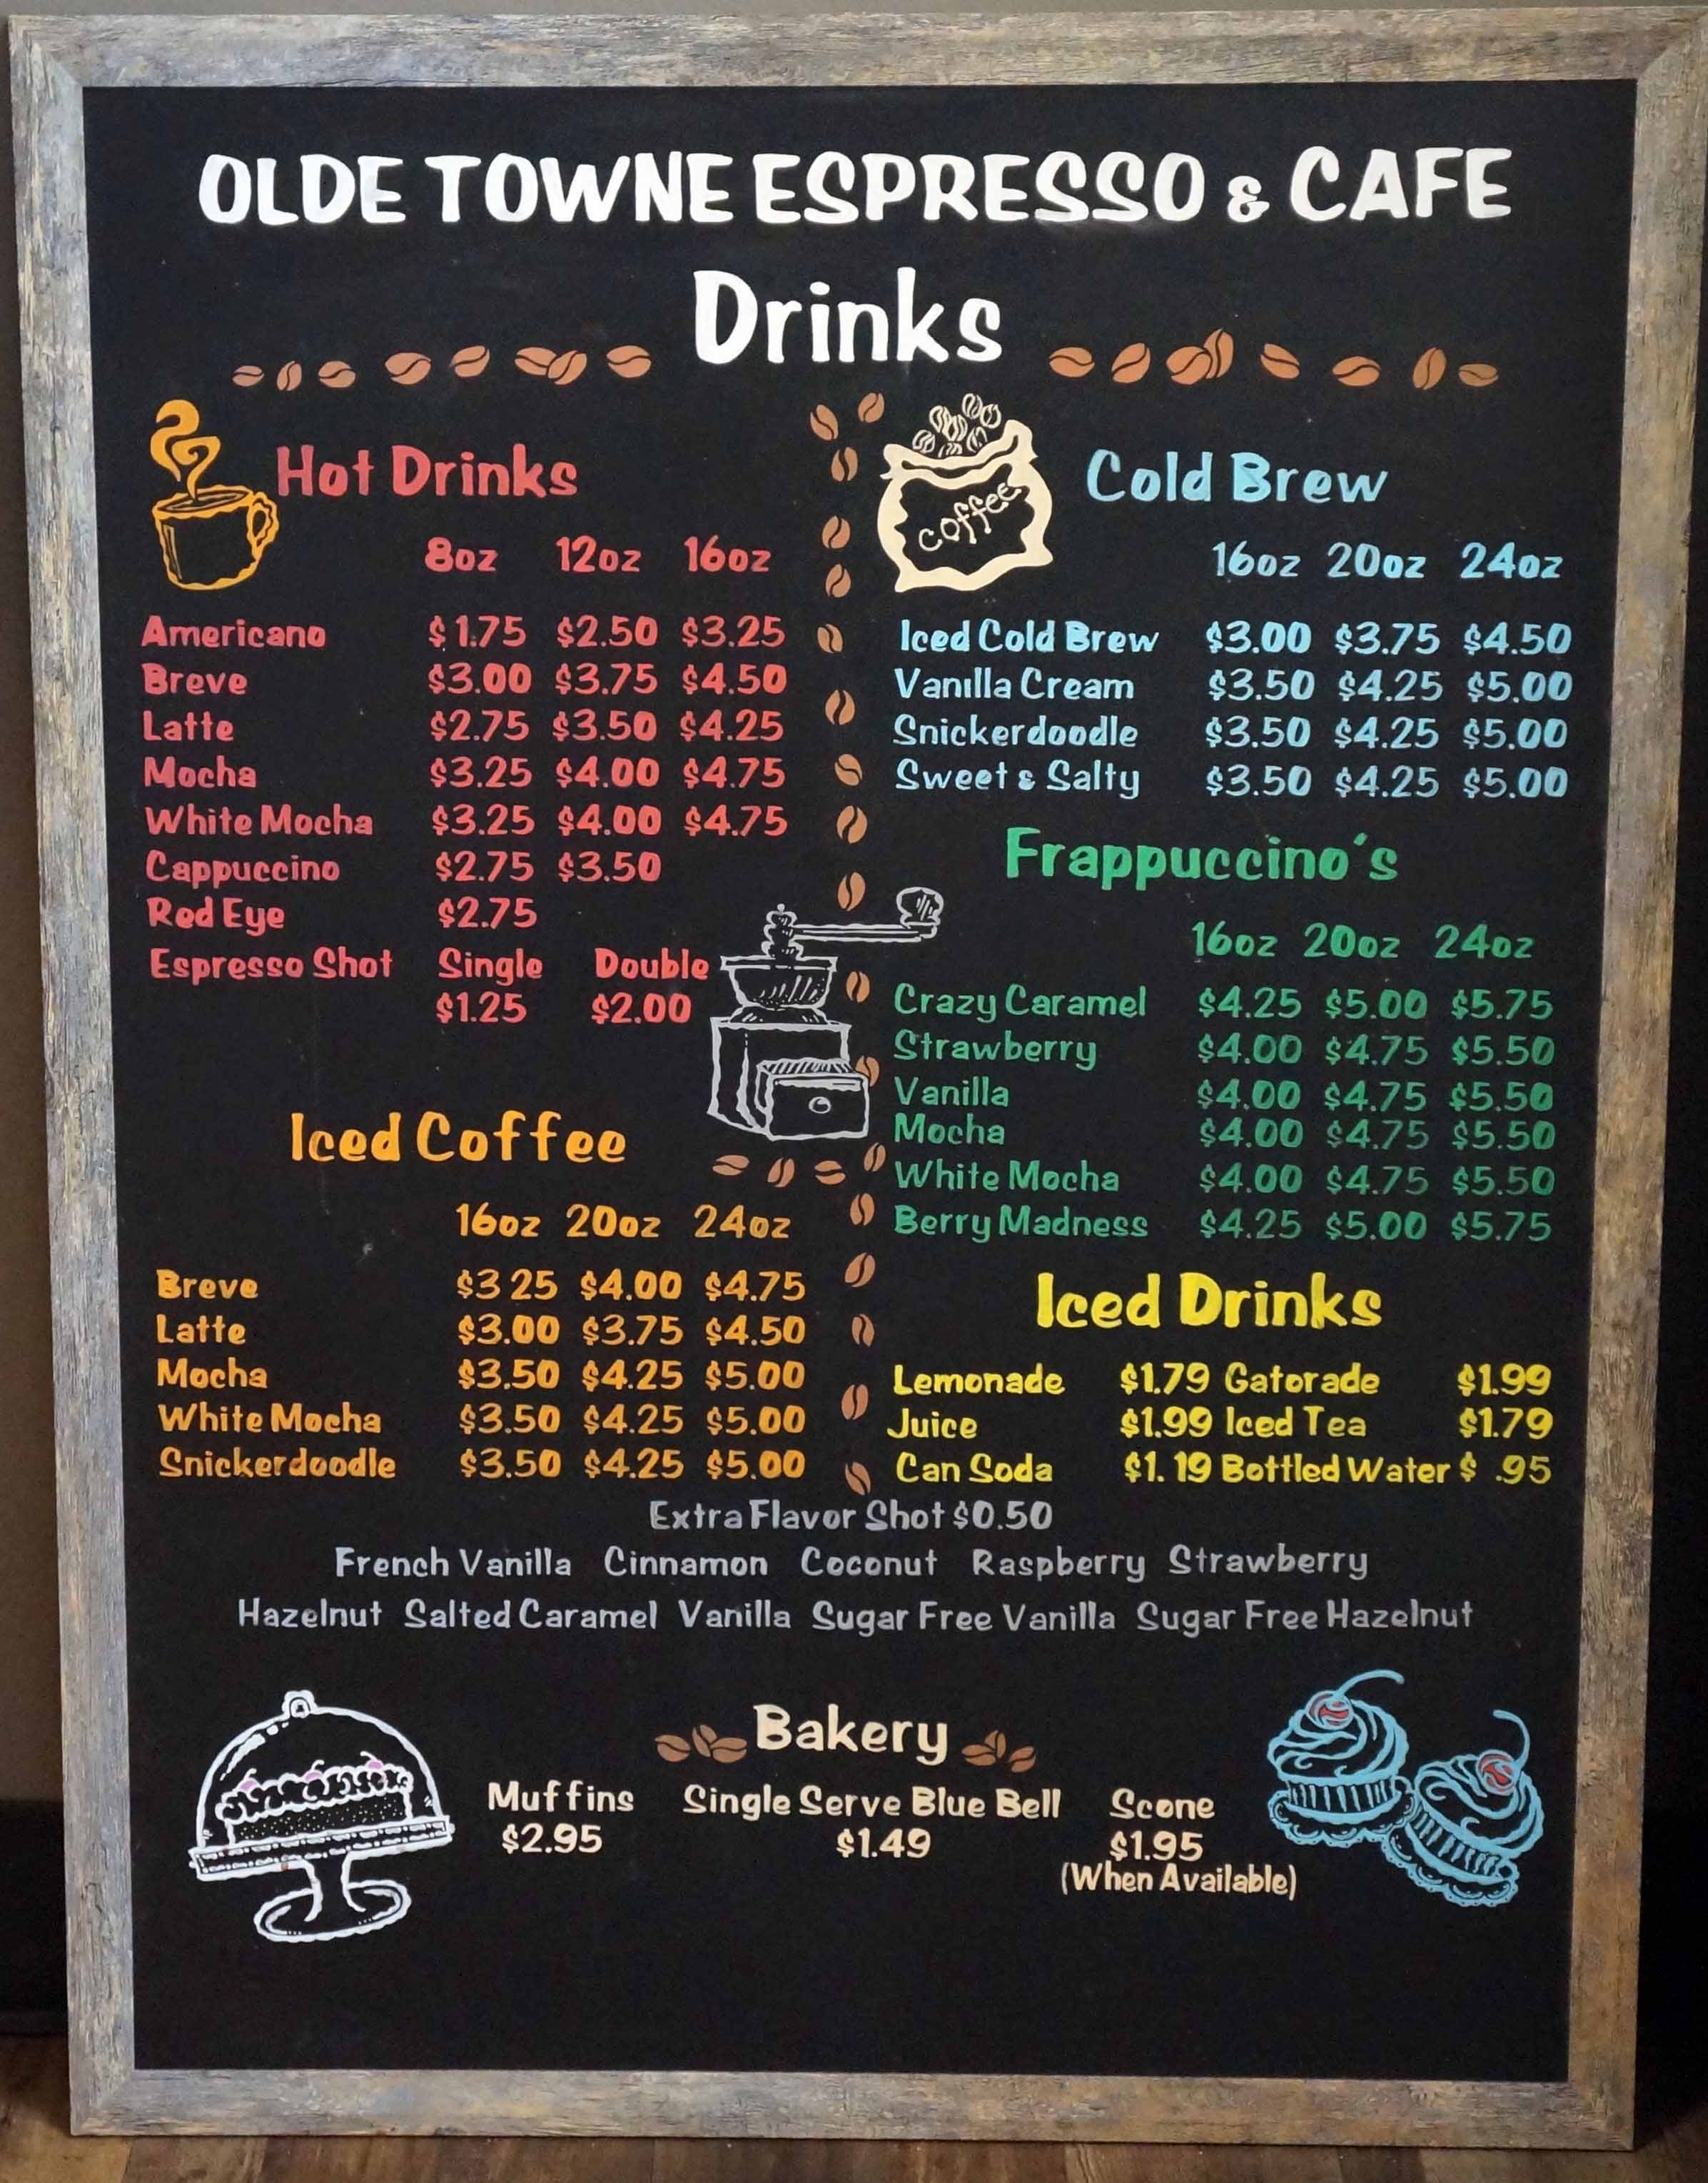 OLDE TOWNE ESPRESSO & CAFE
Drinks
Hot Drinks
8oz 12oz 16oz
Americano $1.75 $2.50 $3.25
Breve $3.00 $3.75 $4.50
Latte $2.75 $3.50 $4.25
Mocha $3.25 $4.00 $4.75
White Mocha $3.25 $4.00 $4.75
Cappuccino $2.75 $3.50
Red Eye $2.75
Espresso Shot Single Double
$1.25 $2.00
Iced Coffee
16oz 20oz 24oz
Breve $3 25 $4.00 $4.75
Latte $3.00 $3.75 $4.50
Mocha $3.50 $4.25 $5.00
White Mocha $3.50 $4.25 $5.00
Snickerdoodle $3.50 $4.25 $5.00
coffee
Cold Brew
16oz 20oz 24oz
Iced Cold Brew $3.00 $3.75 $4.50
Vanilla Cream $3.50 $4.25 $5.00
Snickerdoodle $3.50 $4.25 $5.00
Sweet & Salty $3.50 $4.25 $5.00
Frappuccino's
16oz 20oz 24oz
Crazy Caramel $4.25 $5.00 $5.75
Strawberry $4.00 $4.75 $5.50
Vanilla $4.00 $4.75 $5.50
Mocha $4.00 $4.75 $5.50
White Mocha $4.00 $4.75 $5.50
Berry Madness $4.25 $5.00 $5.75
Iced Drinks
Lemonade $1.79 Gatorade $1.99
Juice $1.99 Iced Tea $1.79
Can Soda $1.19 Bottled Water $ .95
Extra Flavor Shot $0.50
French Vanilla Cinnamon Coconut Raspberry Strawberry
Hazelnut Salted Caramel Vanilla Sugar Free Vanilla Sugar Free Hazelnut
Bakery
Muffins Single Serve Blue Bell Scone
$2.95 $1.49 $1.95
(When Available)